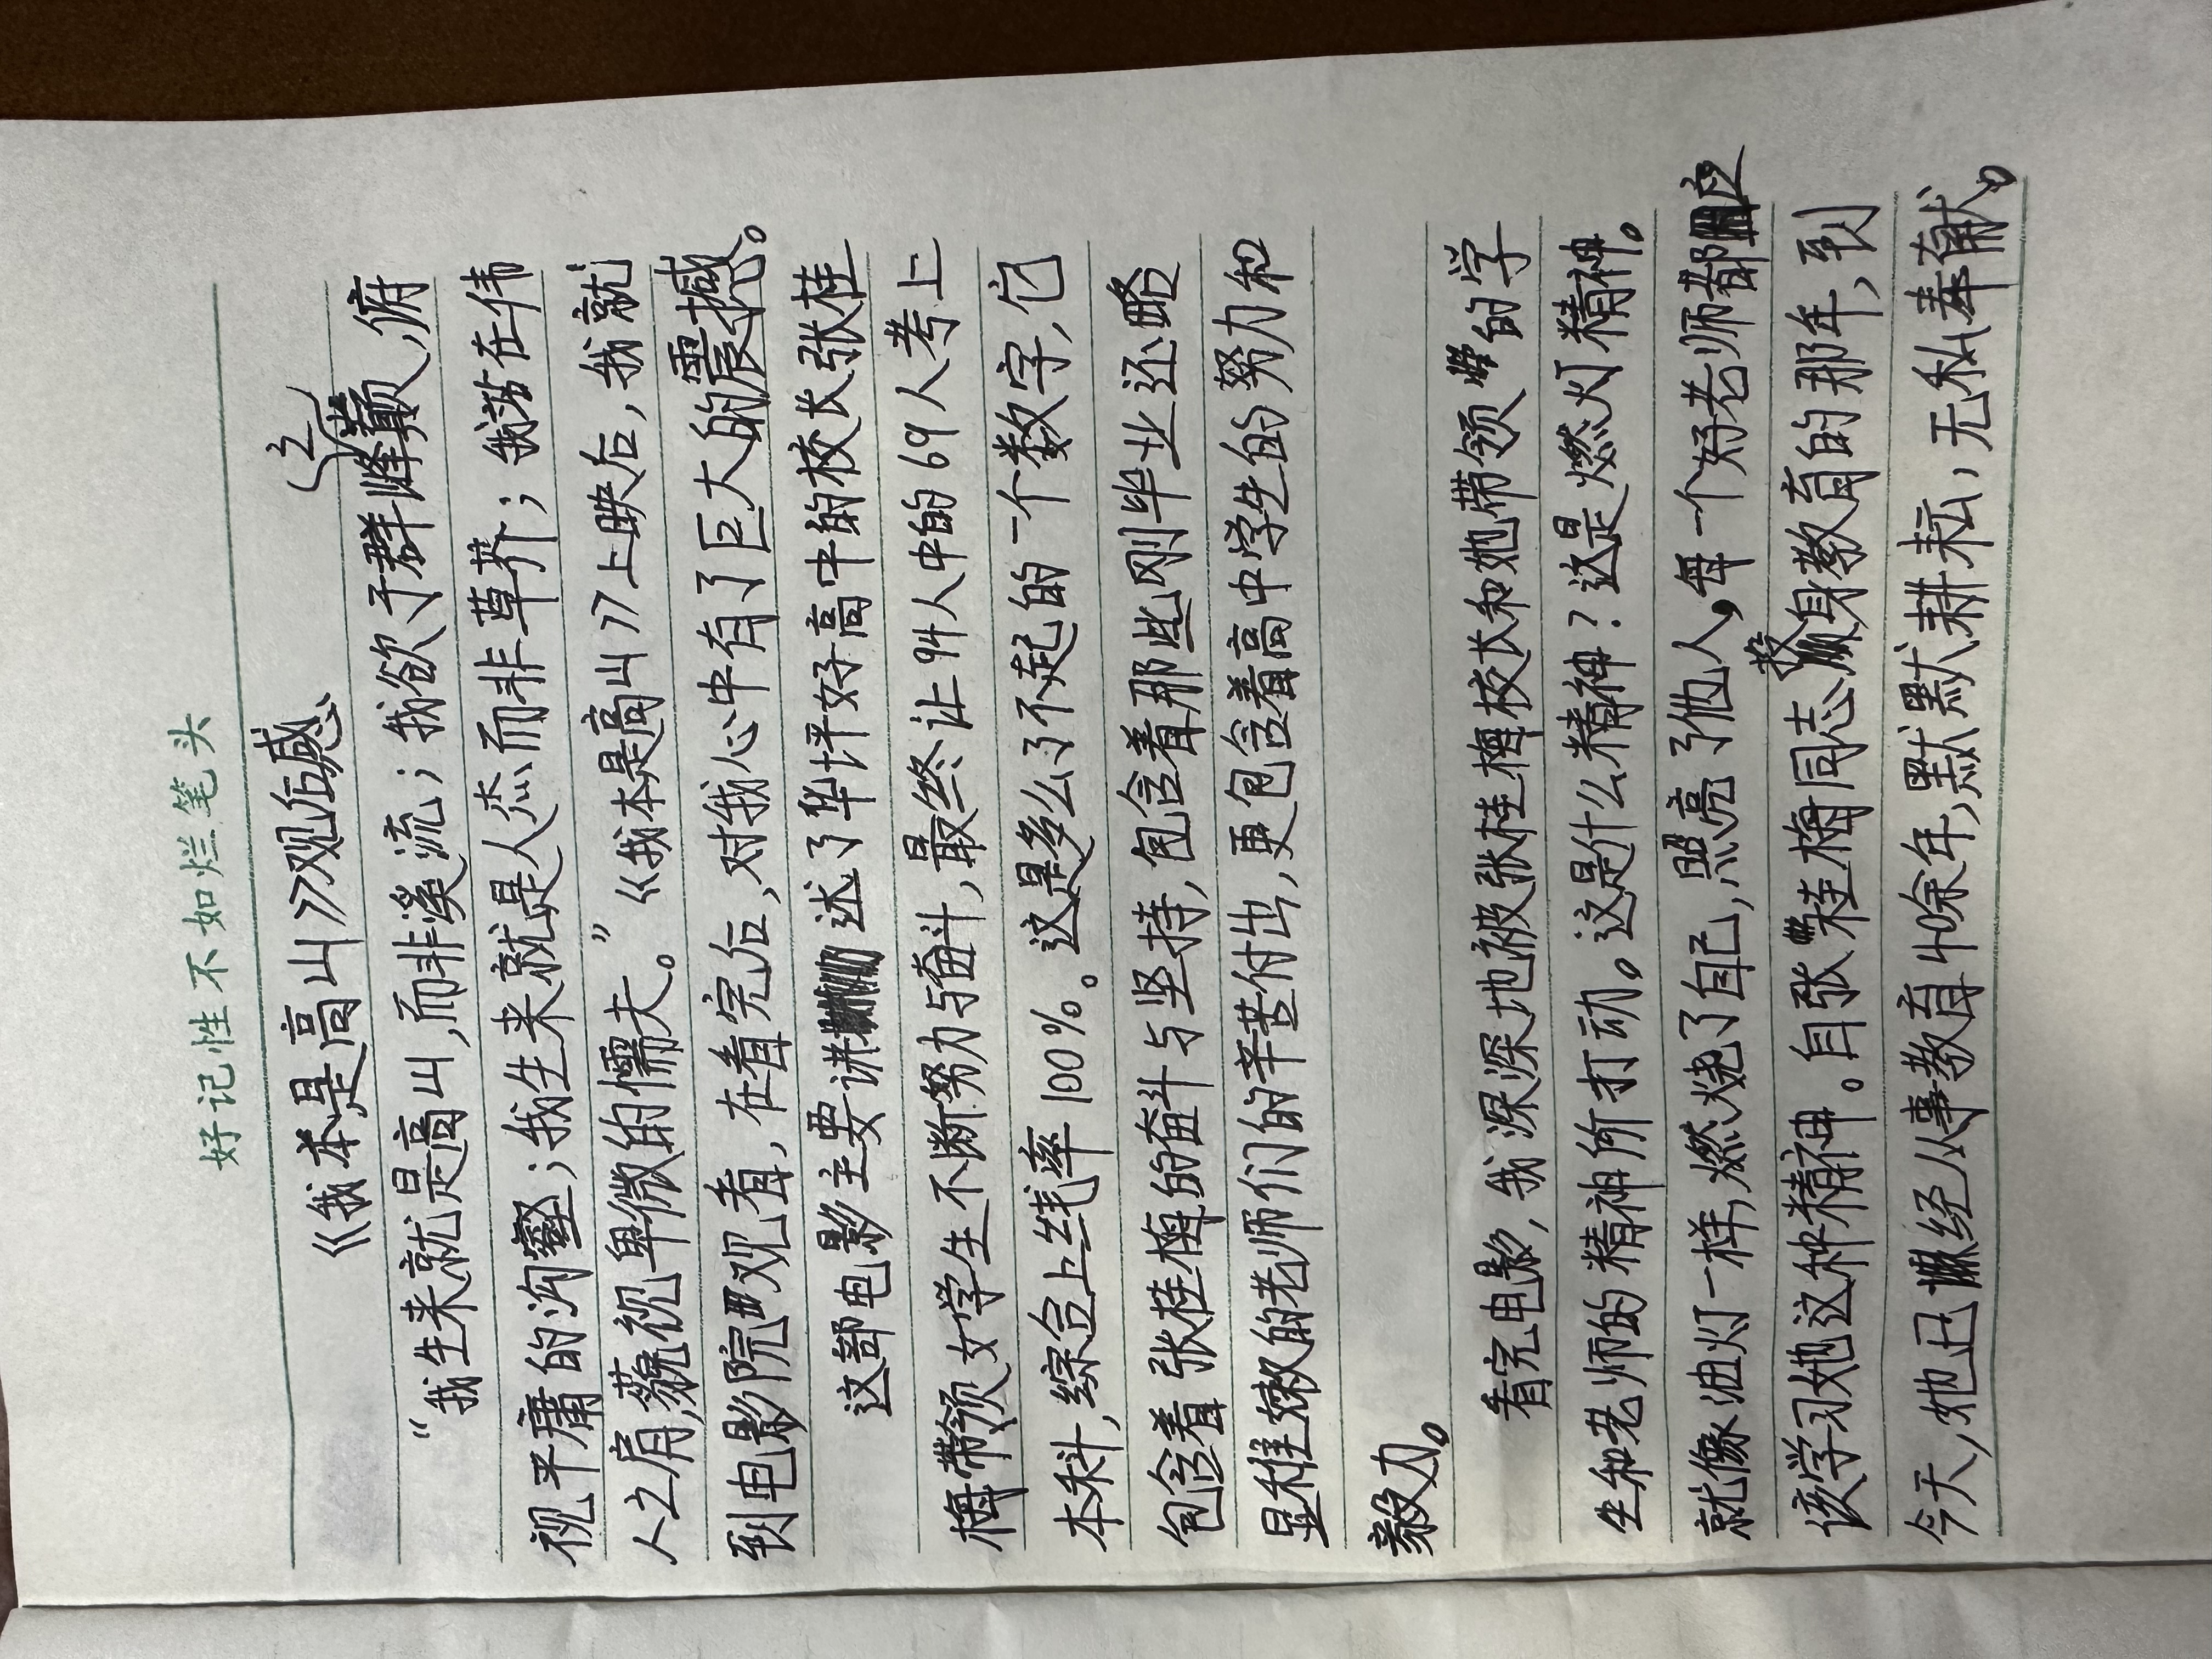 好记性不如烂笔头
《我本是高山》观后感
“我生来就是高山,而非溪流;我欲于群峰之巅,俯
视平庸的沟壑;我生来就是人杰而非草芥;我站在伟
人之肩,藐视卑微的懦夫。”《我本是高山》上映后,我就
到电影院观看,在看完后,对我心中有了巨大的震撼。
这部电影主要讲述了华坪好高中的校长张桂
梅带领女学生不断努力与奋斗,最终让94人中的69人考上
本科,综合上线率100%。这是多么了不起的一个数字,它
包含着张桂梅的奋斗与坚持,包含着那些刚毕业还略
显稚嫩的老师们的辛苦付出,更包含着高中学生的努力和
毅力。
看完电影,我深深地被张桂梅校长和她带领的学
生和老师的精神所打动。这是什么精神?这是燃灯精神。
就像油灯一样,燃烧了自己,照亮了他人,每一个好老师都应
该学习她这种精神。自张桂梅同志投身教育的那年,到
今天,她已经从事教育40余年,默默耕耘,无私奉献。